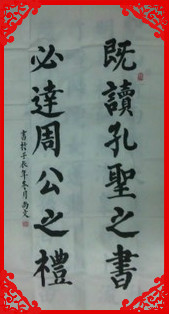 既讀孔聖之書
必達周公之禮
書於壬辰年冬月